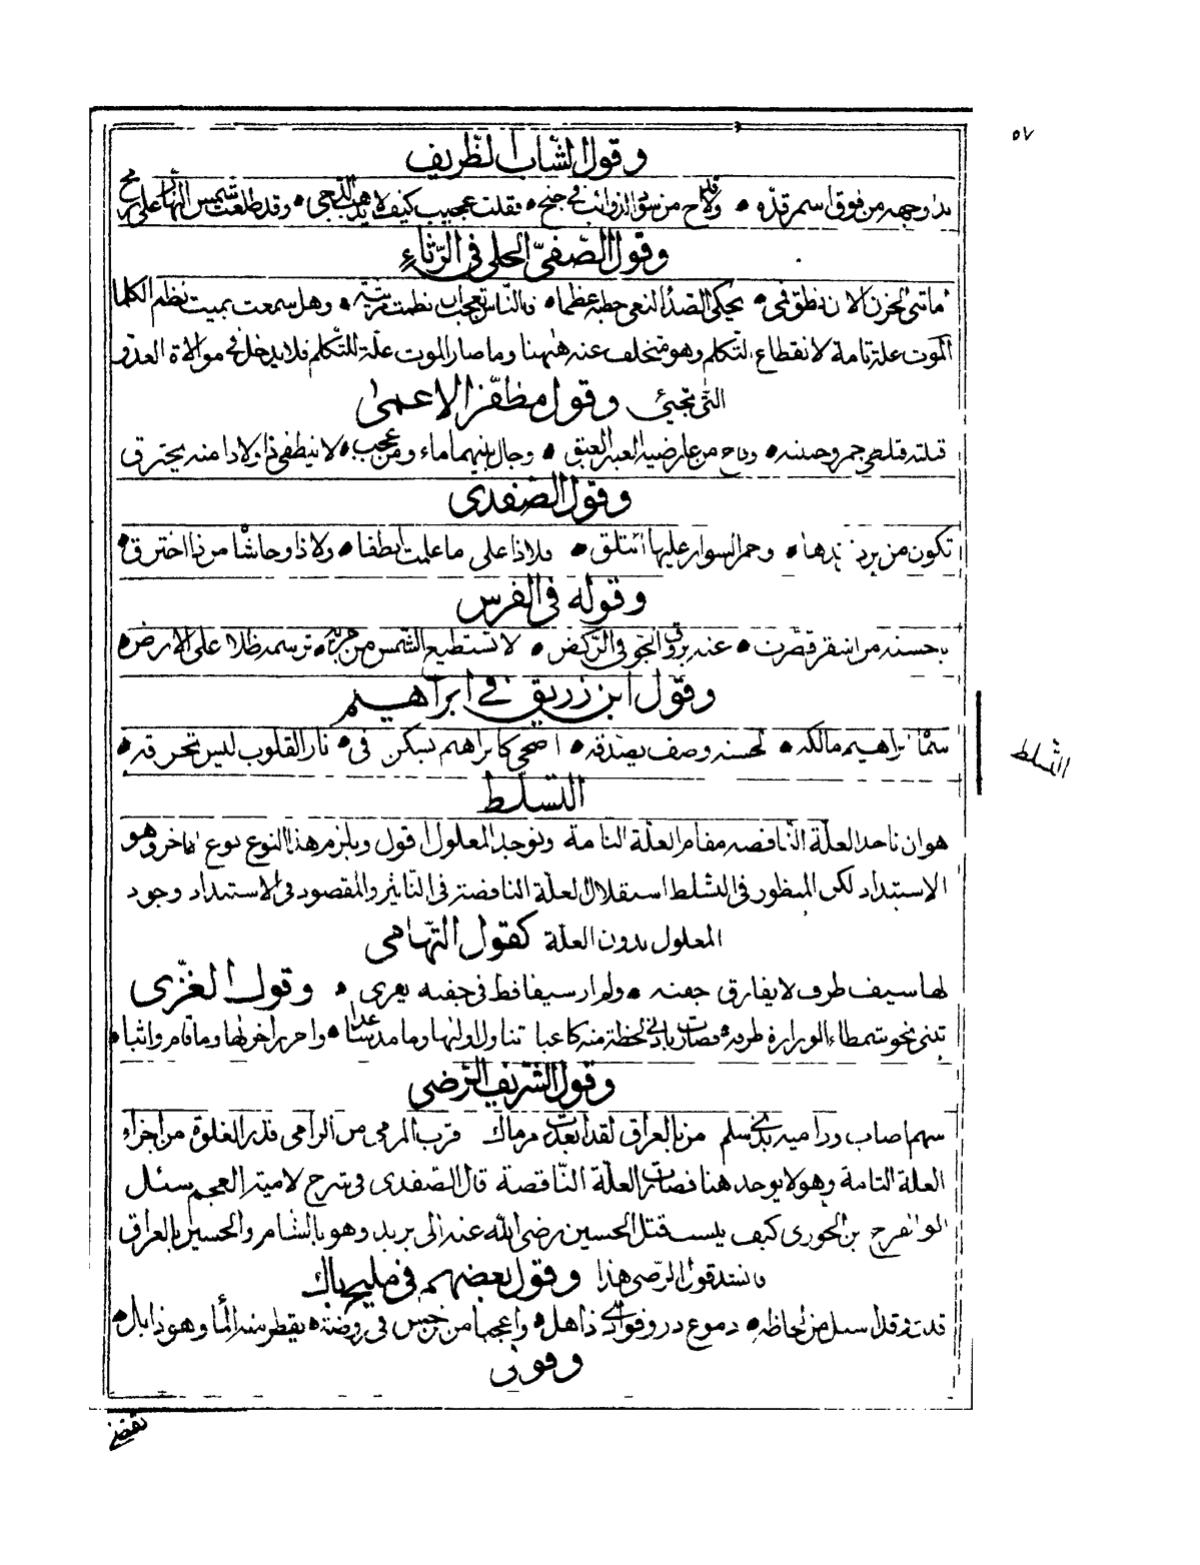 ٥٧
وقول الشاب الظريف
بدا وجهه من فوق اسمر قدّه • وقد لاح من سود الذوائب في جنح • فقلت عجيب كيف لا يذهب الدجى • وقد طلعت شمس النهار على رمح
وقول الصّفيّ الحلي في الرّثاءِ
الحزن الا ان نطق فمى • يحكي الصدا • فالنّاس تعجب ان نظمت مرثيته • وهل سمعت بميت ينظم الكلما
الموت علة تامة لانقطاع التكلم وهو متخلف عنه ههنا وما صار الموت علّة للتّكلم فلا يدخل في موالاة العدوّ
التى تجيئ وقول مظفّر الاعمىٰ
قبلته فتلظى جمر وجنته • وفاح من عارضيه العنبر العبق • وجال بينهما ماء ومن عجب • لا ينطفي ذا ولا ذا منه يحترق
وقول الصّفدى
تكون من برد • وجمر السوار عليها ائتلق • فلا ذا على ما علمت انطفا • ولا ذا وحاشا من ذا احترق •
وقوله في الفرس
يا حسنه من اشقر قصّرت • عنه بروق الجو في الرّكض • لا تستطيع الشّمس من جريه • ترسمه ظلا على الارض •
وقول ابن زريق في ابراهيم
ابراهيم مالكه • لحسنه وصف يصدقه • اضحى كابراهيم يسكن في • نار القلوب ليس تحرقه •
التّسلط
التسلط
هو ان تاخذ العلّة النّاقصه مقام العلّة التامة وتوجد المعلول اقول ويلزم هذا النوع نوع اٰخر وهو
الاستبداد لكن المنظور فى التّسلط استقلال العلّة الناقصة فى التاثير والمقصود فى الاستبداد وجود
المعلول بدون العلة كقول التّهامى
لها سيف طرف لا يفارق جفنه • ولم ار سيفا قط فى جفنه يفرى • وقول الغزّى
تناول اولٰها وما مدّ ساعدا • واحرز اخرٰها وما قام واثبا •
وقول الشّريف الرّضى
سهم اصاب وراميه بذي سلم من بالعراق لقد ابعدت مرماك قرب المرمى من الرامى قدر الغلوة من اجزاء
العلة التامة وهو لا يوجد هنا فصارت العلّة النّاقصة قال الصّفدى فى شرح لامية العجم سئل
ابو الفرج بن الجوزى كيف ينسب قتل الحسين رضي اللّه عنه الى يزيد وهو بالشام والحسين بالعراق
فانشد قول الرّضى هذا وقول بعضهم فى مليح باك
من الحاظه • دموع ذر وفؤادي ذاهل • واعجبا من نرجس فى روضة • يقطر منه الما وهو ذابل •
وقولى